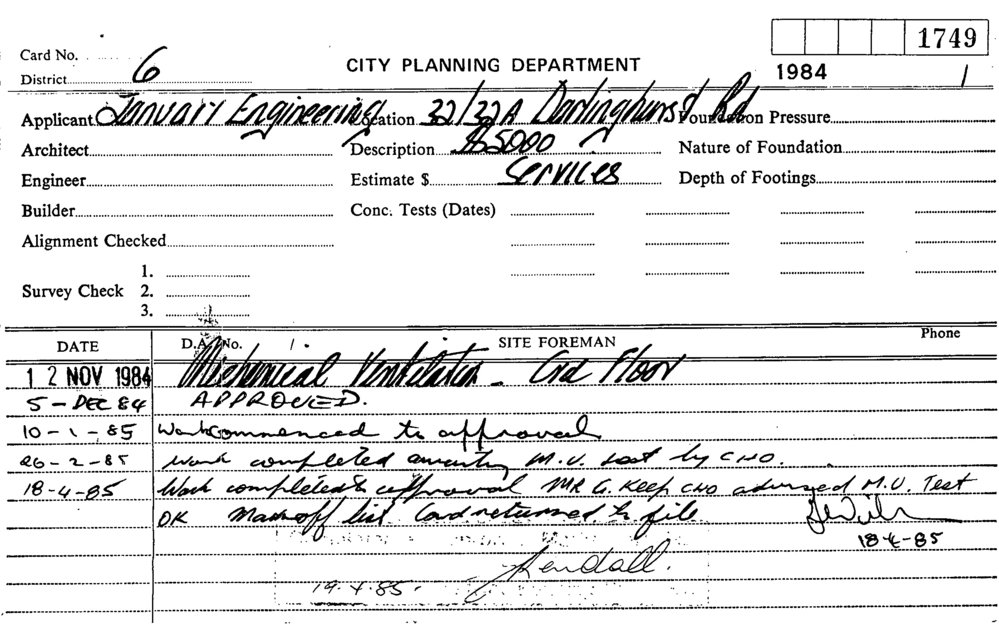 1749
Card No.
CITY PLANNING DEPARTMENT
1984 1
District 6
Applicant January Engineering Location 32/32A Darlinghurst Rd Foundation Pressure
Architect Description $5000 Nature of Foundation
Engineer Estimate $ Services Depth of Footings
Builder Conc. Tests (Dates)
Alignment Checked
1.
Survey Check 2.
3.
DATE D.A. No. SITE FOREMAN Phone
12 NOV 1984 Mechanical Ventilation - Grd Floor
5 - DEC 84 APPROVED.
10-1-85 Work commenced to approval
26-2-85 Work completed awaiting M.V. test by CHO.
18-4-85 Work completed to approval MR G. Keep CHO advised M.V. Test
OK Mark off list Card returned to file
18-4-85
Kendall.
19.4.85.